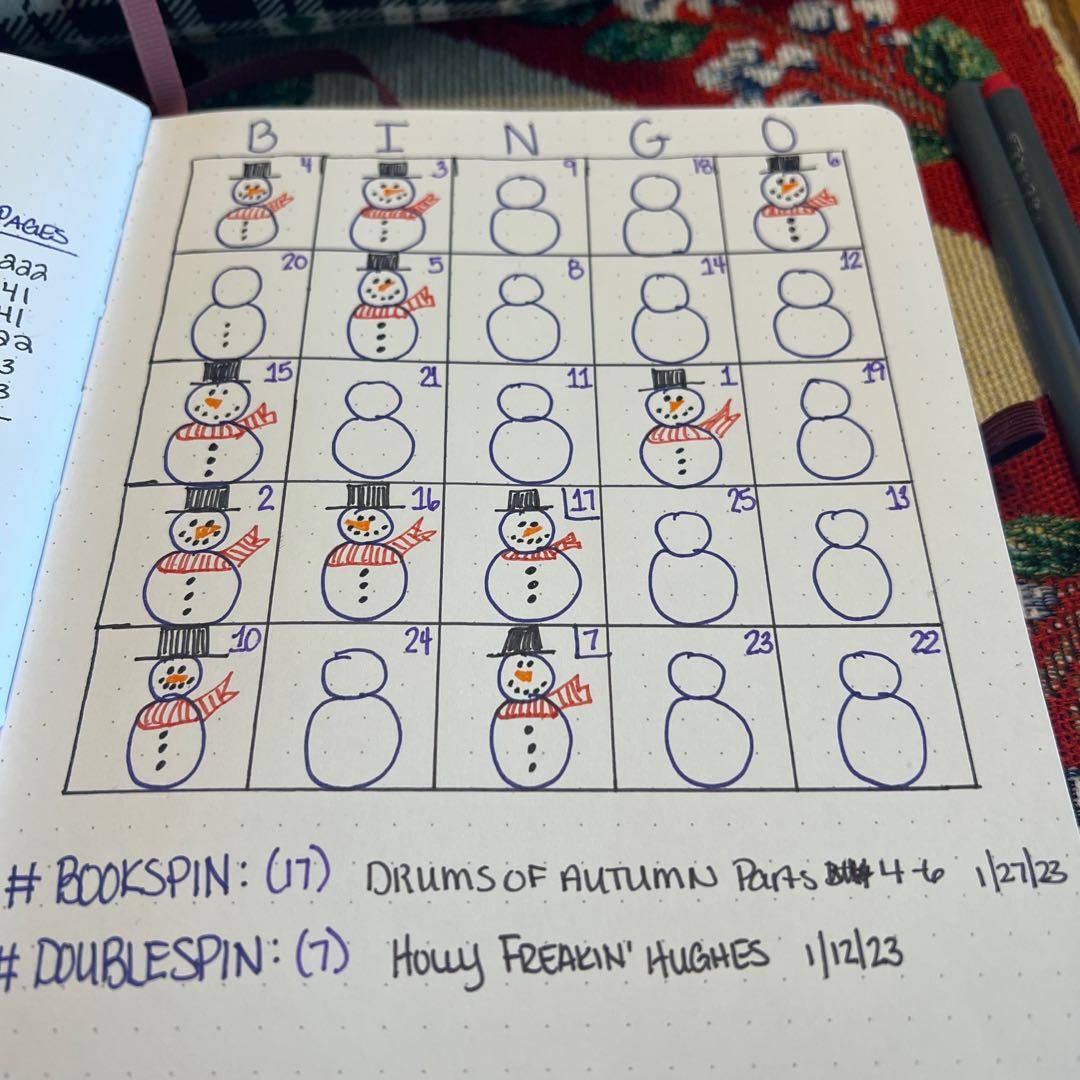 PAGES
222
41
41
22
3
3
B I N G O
4 3 9 18 6
20 5 8 14 12
15 21 11 1 19
2 16 17 25 13
10 24 7 23 22
# BOOKSPIN: (17) DRUMS OF AUTUMN Parts 4-6 1/27/23
# DOUBLESPIN: (7) HOLLY FREAKIN' HUGHES 1/12/23